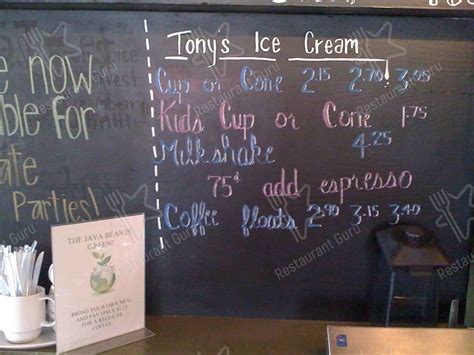 Tony's Ice Cream
Cup or Cone 2.15 2.70 3.05
Kids Cup or Cone 1.75
Milkshake 4.25
75¢ add espresso
Coffee floats 2.90 3.15 3.40
e now
ble for
ate
Parties!
THE JAVA BEAN IS
GREEN!
BRING YOUR OWN MUG
AND PAY ONLY $1.25
FOR A REGULAR
COFFEE
Restaurant Guru